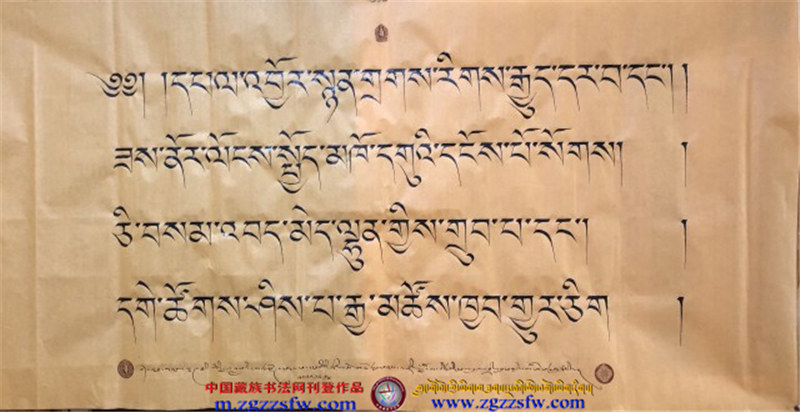 ༄༅། །དང་ལ་འབྱོར་སྙན་གྲགས་རིགས་རྒྱུད་དར་བ་དང་། །
ཟས་ནོར་ལོངས་སྤྱོད་མཁོ་དགུའི་དངོས་པོ་སོགས། །
ཅི་བསམ་འབད་མེད་ལྷུན་གྱིས་གྲུབ་པ་དང་། །
དགེ་ཚོགས་ཤིས་པ་རྒྱ་མཚོས་ཁྱབ་གྱུར་ཅིག །
中国藏族书法网刊登作品
m.zgzzsfw.com www.zgzzsfw.com